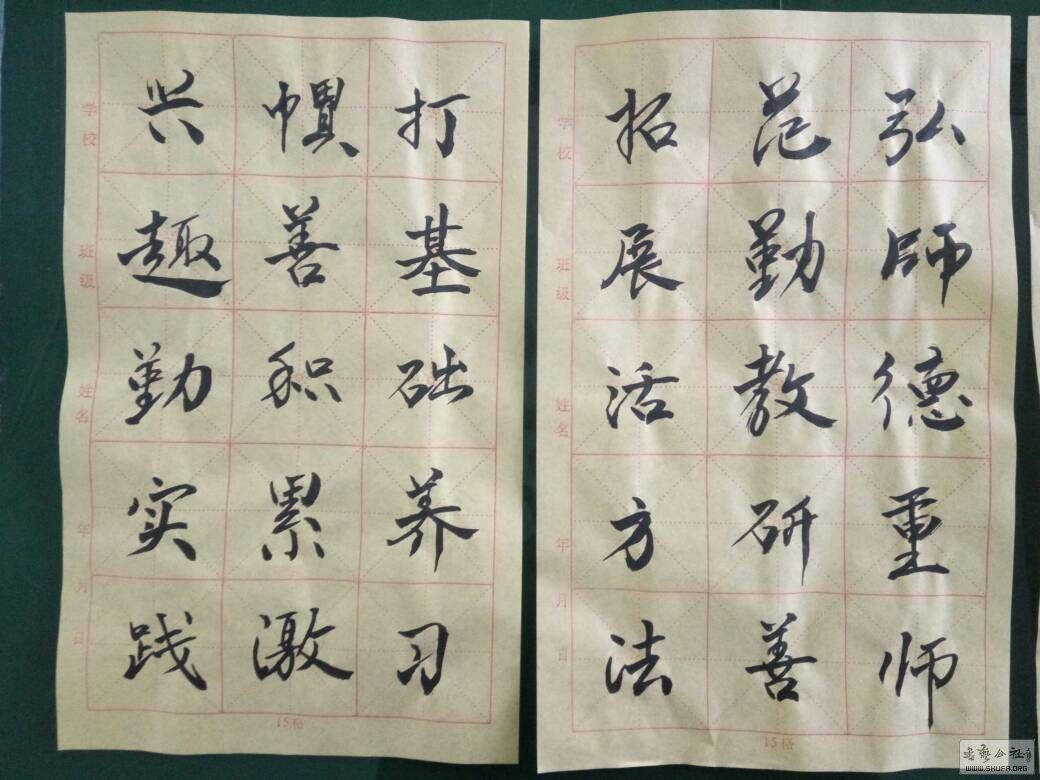 弘師德重师
范勤教研善
拓展活方法
学校 班级 姓名 年 月 日
15格
打基础养习
惯善积累激
兴趣勤实践
学校 班级 姓名 年 月 日
15格
WWW.SHUFA.ORG